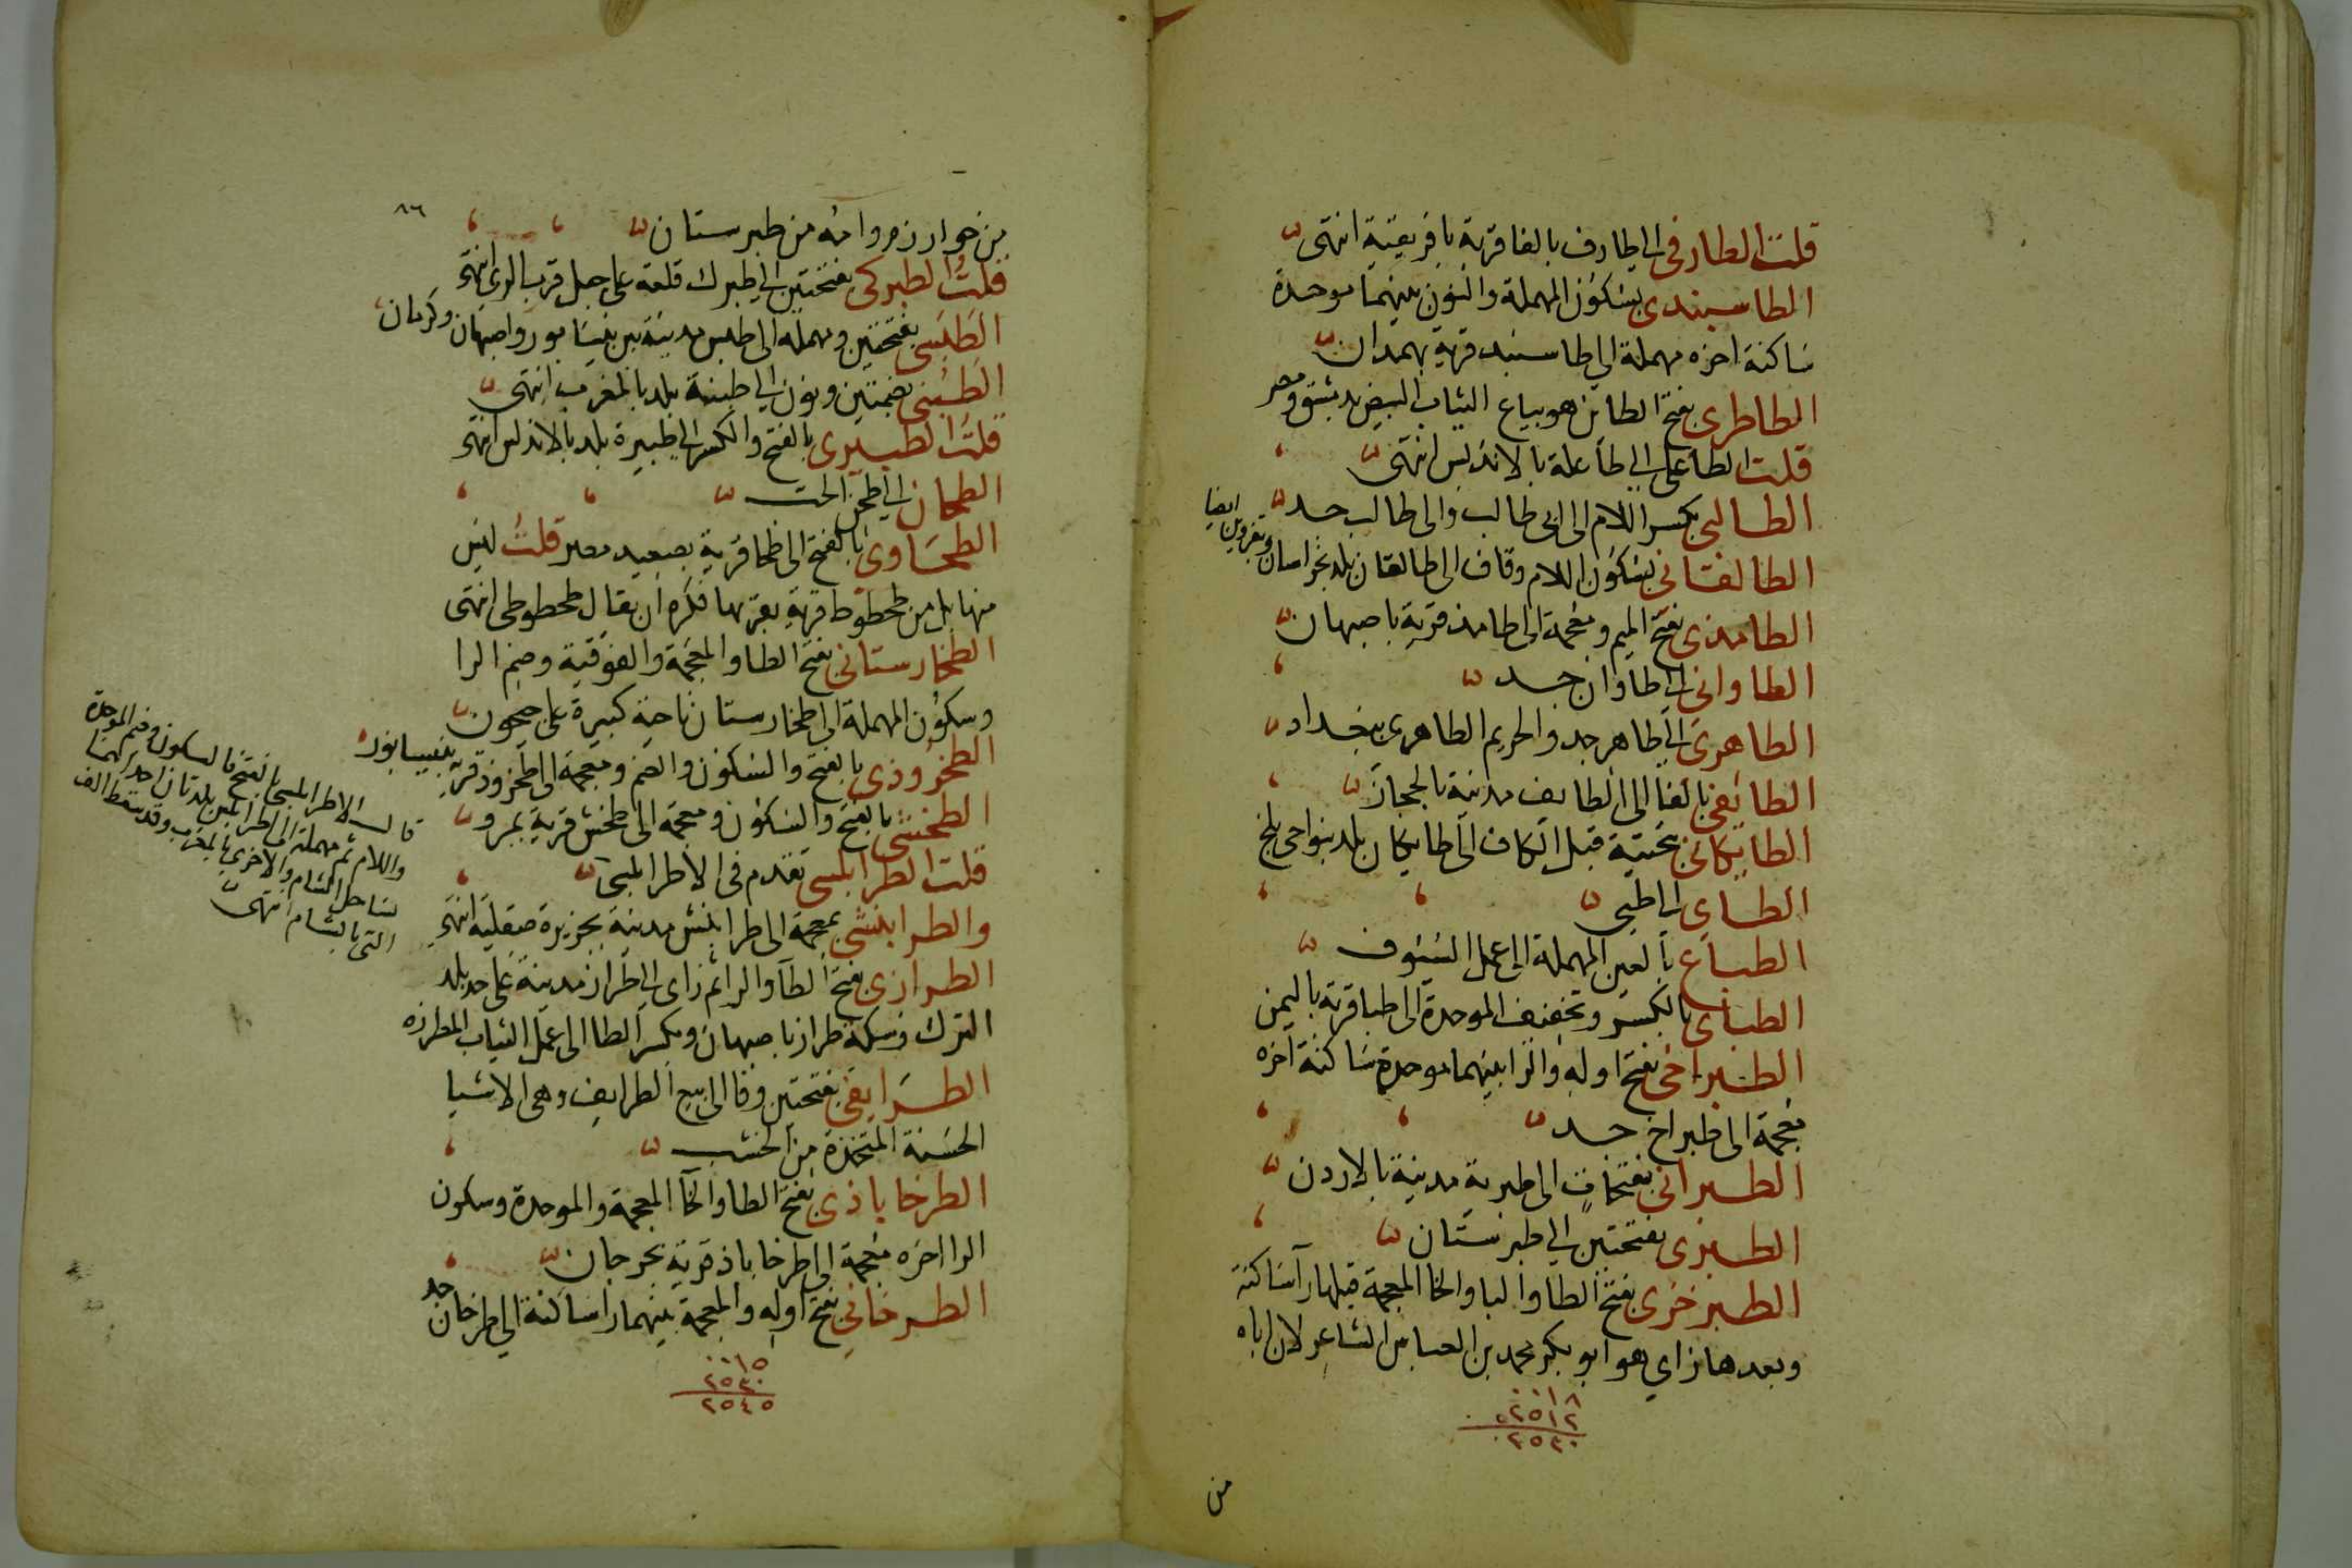 قلت الطارفى الى طارف بالفا قرية بافريقية انتهى
الطاسبندى بسكون المهملة والنون بينهما موحدة
ساكنة اخره مهملة الى طاسبند قرية بهمدان
الطاطرى بفتح الطائن هو بياع الثياب البيض بدمشق ومصر
قلت الطاعلى الى طاعلة بالاندلس انتهى
الطالبى بكسر اللام الى ابى طالب والى طالب جد
الطالقانى بسكون اللام وقاف الى طالقان بلد بخراسان وبقزوين ايضا
الطامذى بفتح الميم ومعجمة الى طامذ قرية باصبهان
الطاوانى الى طاوان جد
الطاهرى الى طاهر جد والحريم الطاهرى ببغداد
الطائفى بالفا الى الطايف مدينة بالحجاز
الطايكانى بتحتية قبل الكاف الى طايكان بلد بنواحى بلخ
الطاى الى طيى
الطباع بالعين المهملة الى عمل السيوف
الطباى بالكسر وتخفيف الموحدة الى طبا قرية باليمن
الطبراخى بفتح اوله والرا بينهما موحدة ساكنة اخره
معجمة الى طبراخ جد
الطبرانى بفتحات الى طبرية مدينة بالاردن
الطبرى بفتحتين الى طبرستان
الطبرخزى بفتح الطا والبا والخا المعجمة قبلها را ساكنة
وبعدها زاي هو ابو بكر محمد بن العباس الشاعر لان اباه
٠٠١٨
٢٥١٢
٢٥٣٠
من
٨٦
من خوارزم وامه من طبرستان
قلت الطبركى بفتحتين الى طبرك قلعة على جبل قرب الري انتهى
الطبسى بفتحتين ومهملة الى طبس مدينة بين نيسابور واصبهان وكرمان
الطبنى بضمتين ونون الى طبنة بلد بالمغرب انتهى
قلت الطبيرى بالفتح والكسر الى طبيرة بلد بالاندلس انتهى
الطحان الى طحن الحب
الطحاوى بالفتح الى طحا قرية بصعيد مصر قلت ليس
منها بل من طحطوط قرية بقربها فكره ان يقال طحطوطى انتهى
الطخارستانى بفتح الطا والمعجمة والفوقية وضم الرا
وسكون المهملة الى طخارستان ناحية كبيرة على جيحون
الطخروذى بالفتح والسكون والضم ومعجمة الى طخروذ قرية بنيسابور
الطخشى بالفتح والسكون ومعجمة الى طخش قرية بمرو
قلت الطرابلسى تقدم فى الاطرابلسى
والطرابنشى بمعجمة الى طرابنش مدينة بجزيرة صقلية انتهى
الطرازى بفتح الطا والرا ثم زاى الى طراز مدينة على حد بلد
الترك وسكة طراز باصبهان وبكسر الطا الى عمل الثياب المطرزه
الطرايفى بفتحتين وفا الى بيع الطرايف وهى الاشيا
الحسنة المتخذة من الخشب
الطرخاباذى بفتح الطا والخا المعجمة والموحدة وسكون
الرا اخره معجمة الى طرخاباذ قرية بجرجان
الطرخانى بفتح اوله والمعجمة بينهما را ساكنة الى طرخان جد
٠٠١٥
٢٥٣٠
٢٥٤٥
قال الاطرابلسى بالفتح فالسكون وضم الموحدة
واللام ثم مهملة الى اطرابلس بلدتان احداهما
بساحل الشام والاخرى بالمغرب وقد تسقط الف
التى بالشام انتهى